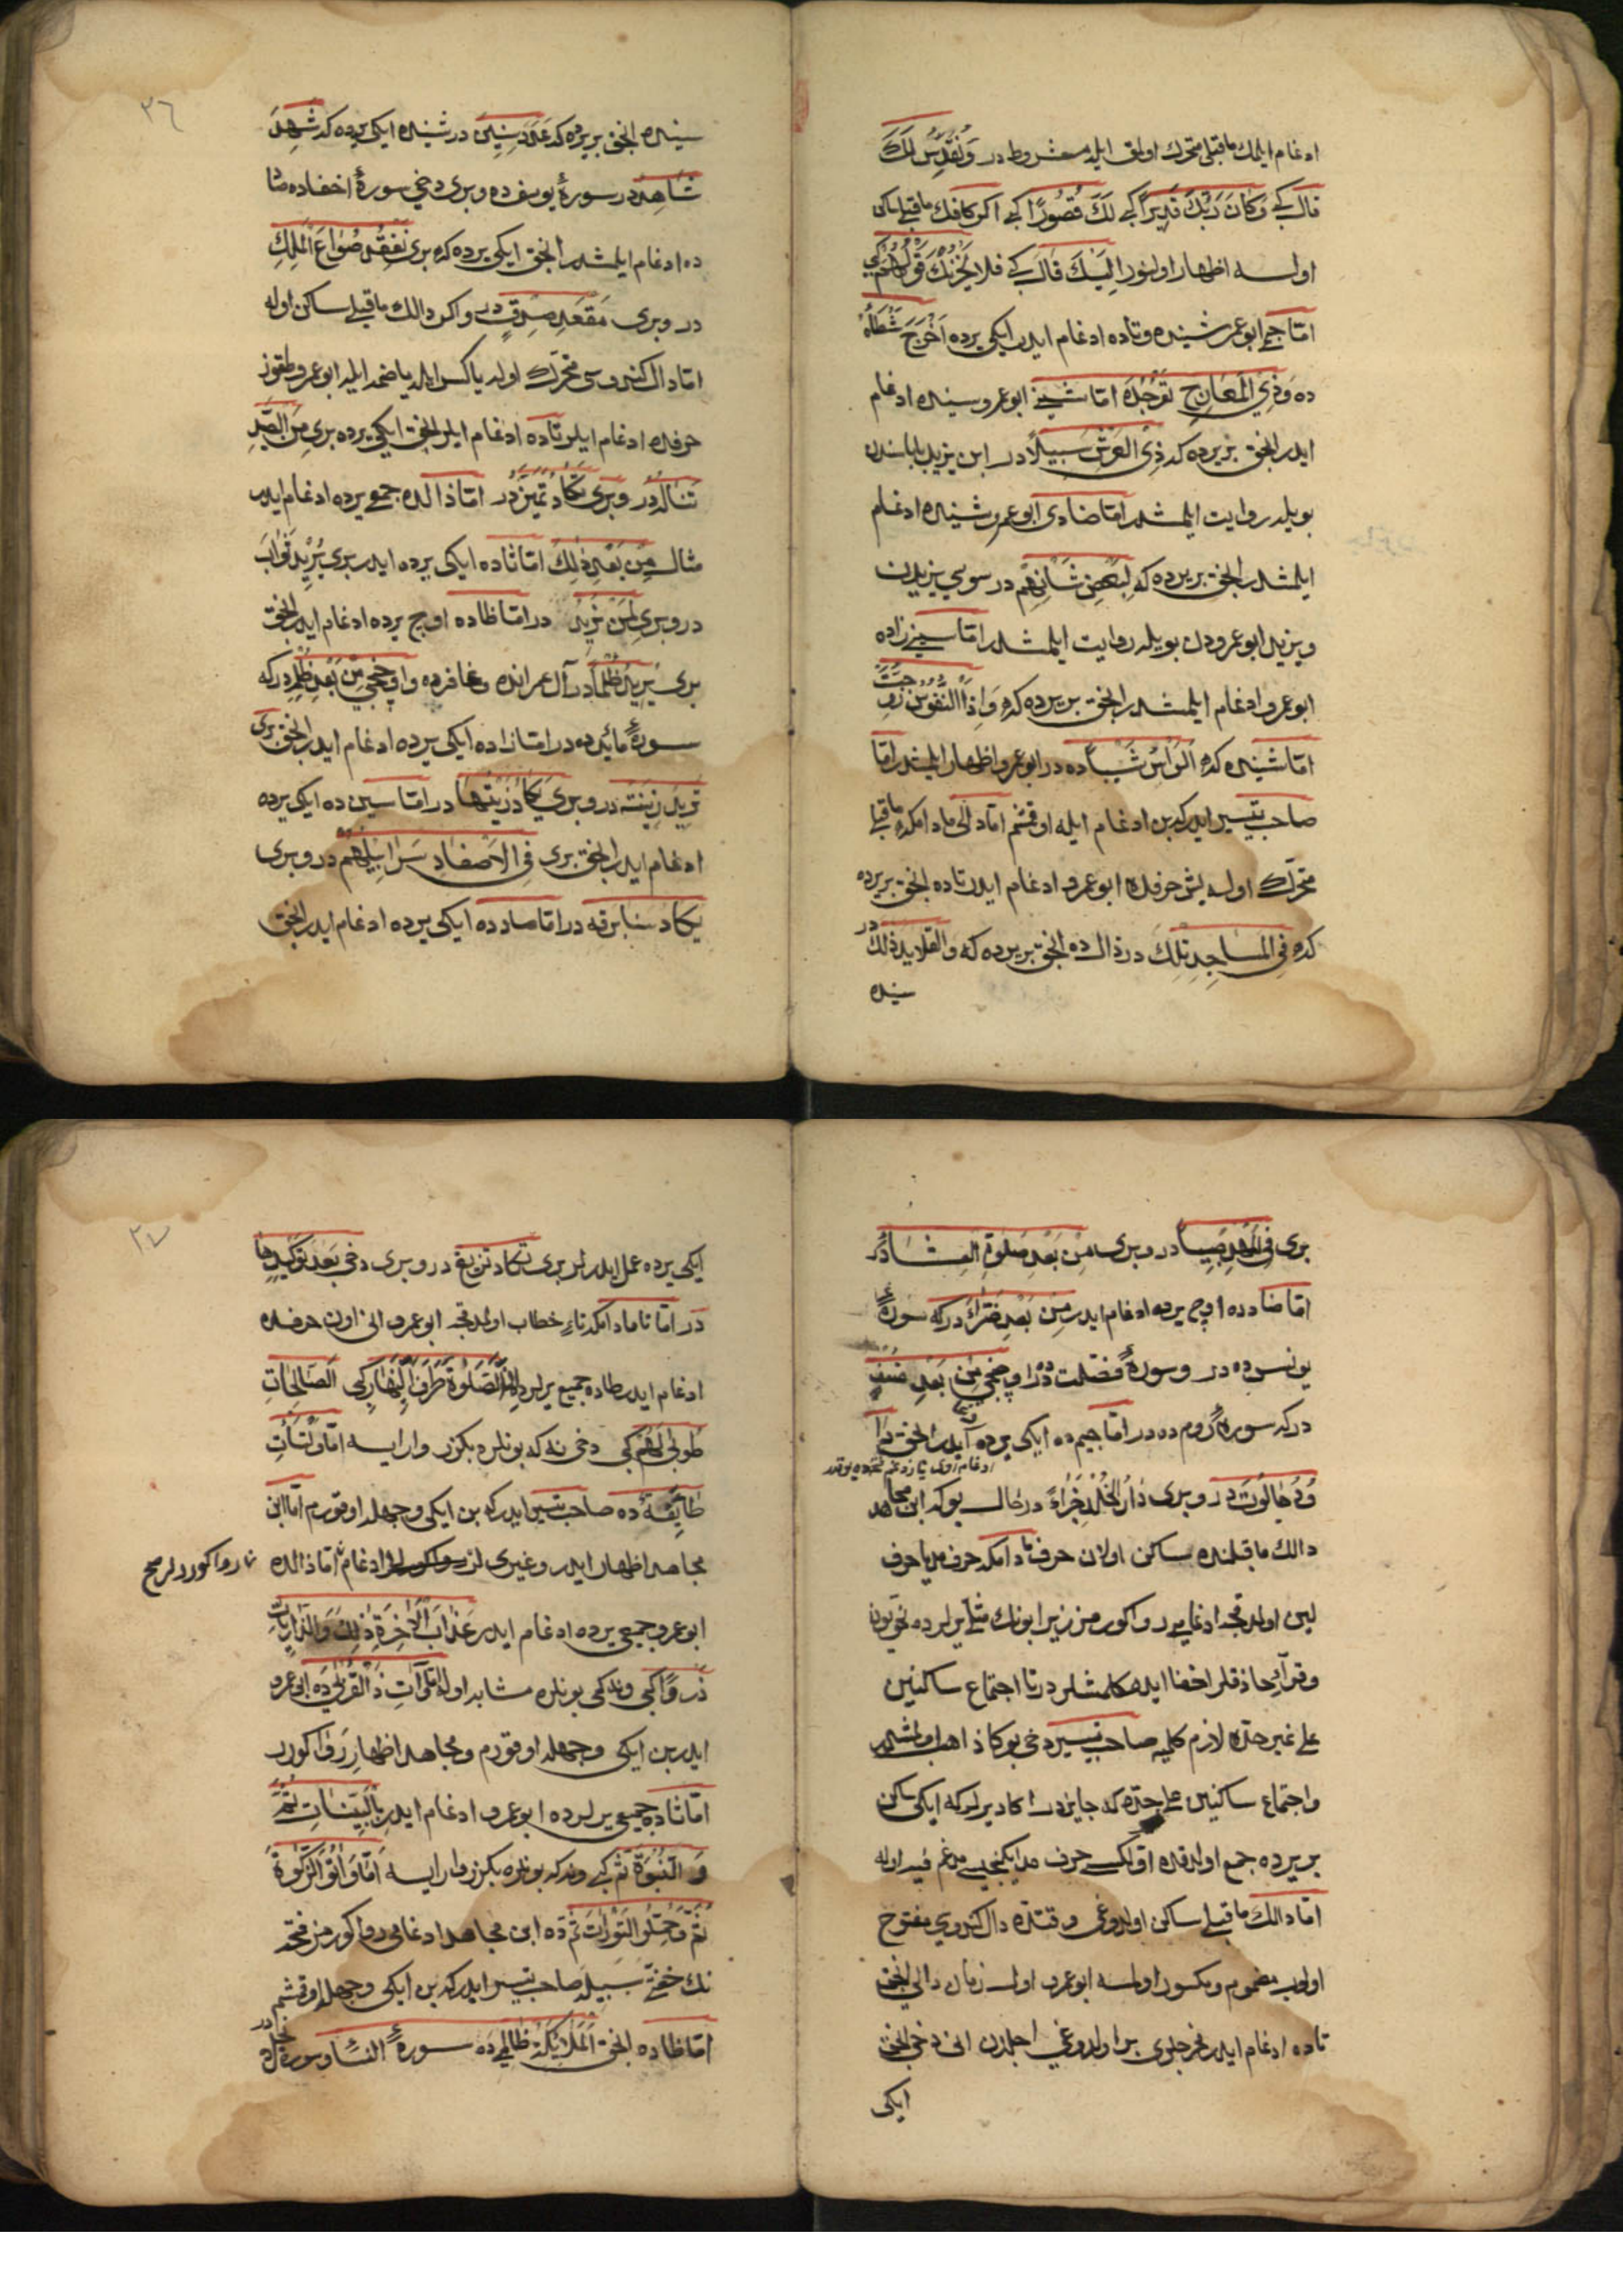 ادغام ايلمك ماقبلى متحرك اولمق ايله مشروطدر وَنُقَدِّسُ لَكَ
قال كبى وَكَانَ رَبُّكَ قَدِيرًا كبى لَكَ قُصُورًا كبى اكر كافك ماقبلى ساكن
اولسه اظهار اولنور اِلَيْكَ قَالَ كبى فلا يَحْزُنْكَ قَوْلُهُمْ كبى
امّا جيمى ابوعمرو شينده و تاده ادغام ايدر ايكى يرده اَخْرَجَ شَطْأَهُ
ده وَذِي الْمَعَارِجِ تَعْرُجُ ده امّا شينى ابوعمرو سينده ادغام
ايدر انجق بر يرده كه ذِى الْعَرْشِ سَبِيلًا در ابن يزيدى باباسندن
بويله روايت ايلمشدر امّا ضادى ابوعمرو شينده ادغام
ايلمشدر انجق بر يرده كه لِبَعْضِ شَأْنِهِمْ در سوسى يزيديدن
ويزيدى ابوعمرودن بويله روايت ايلمشدر امّا سينى زاده
ابوعمرو ادغام ايلمشدر انجق بر يرده كه وَاِذَا النُّفُوسُ زُوِّجَتْ
امّا شينده كه الرَّأْسُ شَيْبًا ده در ابوعمرو اظهار ايلمشدر امّا
صاحب تيسير ايدر كه بن ادغام ايله اوقشم امّا دالى مادامكه ماقبلى
متحرك اولسه بش حرفده ابوعمرو ادغام ايدر تاده انجق بر يرده
كه فِى الْمَسَاجِدِ تِلْكَ در ذالده انجق بر يرده كه والقلايد ذلك در
سينده
٣٦
سينده انجق بر يرده كه عَدَدَ سِنِينَ در شينده ايكى يرده كه شَهِدَ
شَاهِدٌ در سورۀ يوسفده وبرى دخى سورۀ احقافده صاد
ده ادغام ايلمشدر انجق ايكى يرده كه برى نَفْقِدُ صُوَاعَ الْمَلِكِ
در وبرى مَقْعَدِ صِدْقٍ در واكر دالك ماقبلى ساكن اوله
امّا دال كندوسى متحرك اوله يا كسر ايله يا ضمه ايله ابوعمرو طقوز
حرفده ادغام ايلر تاده ادغام ايلر انجق ايكى يرده برى مِنَ الصَّيْدِ
تَنَالُهُ در وبرى تَكَادُ تَمَيَّزُ در امّا ذالده جمع يرده ادغام ايدر
مثال مِنْ بَعْدِ ذٰلِكَ امّا ثاده ايكى يرده ايدر برى يُرِيدُ ثَوَابَ
در وبرى لِمَنْ نُرِيدُ در امّا ظاده اوچ يرده ادغام ايدر انجق
برى يُرِيدُ ظُلْمًا در آل عمرانده وغافرده واوچنجى مِنْ بَعْدِ ظُلْمِهِ در كه
سورۀ مائده ده در امّا زاده ايكى يرده ادغام ايدر انجق برى
تُرِيدُ زِينَةَ در وبرى يَكَادُ زَيْتُهَا در امّا سينده ايكى يرده
ادغام ايدر انجق برى فِى الْاَصْفَادِ سَرَابِيلُهُمْ در وبرى
يَكَادُ سنا برقه در امّا صادده ايكى يرده ادغام ايدر انجق
برى فِى الْمَهْدِ صَبِيًّا در وبرى مِنْ بَعْدِ صَلٰوةِ الْعِشَاءِ در
امّا ضادده اوچ يرده ادغام ايدر مِنْ بَعْدِ ضَرَّاءَ در كه سورۀ
يونسده در وسورۀ فصّلت ده در اوچنجى مِنْ بَعْدِ ضَعْفٍ
در كه سورۀ رومده در امّا جيمده ايكى يرده ايدر انجق
ادغام
دَاوُدُ جَالُوتَ در وبرى دَارُ الْخُلْدِ جَزَاءً در حال بو كه ابن مجاهد
دالك ماقبلنده ساكن اولان حرف مادامكه حرف مد يا حرف
لين اولمدقجه ادغامى روا كورمز زيرا بونك مثللى يرلرده نحويون
وقرّآء حاذقلر اخفا ايله كلمشلردر تا اجتماع ساكنين
على غير حدّه لازم كلميه صاحب تيسير دخى بوكا ذاهب اولمشدر
واجتماع ساكنين على حدّه كه جايزدر اكا ديرلر كه ايكى ساكن
بر يرده جمع اولدقده اوّلكسى حرف مد ايكنجيسى مدغم فيه اوله
امّا دالك ماقبلى ساكن اولدوغى وقتده دال كندوسى مفتوح
اولوب مضموم ومكسور اولمسه ابوعمرو اول زمان دالى انجق
تاده ادغام ايدر مخرجلرى بر اولدوغى اجلدن انى دخى انجق
ايكى
٣٧
ايكى يرده عمل ايدرلر برى تَكَادُ تَزِيغُ در وبرى دخى بَعْدَ تَوْكِيدِهَا
در امّا تا مادامكه تاءِ خطاب اولمدقجه ابوعمرو انى اون حرفده
ادغام ايدر طاده جميع يرلرده الصَّلٰوةَ طَرَفَىِ النَّهَارِ كبى الصَّالِحَاتِ
طُوبٰى لَهُمْ كبى دخى نه كه بونلره بكزر وار ايسه امّا وَلْتَأْتِ
طَائِفَةٌ ده صاحب تيسير ايدر كه بن ايكى وجهله اوقورم امّا ابن
مجاهد اظهار ايدر وغيرى لر ادغام امّا ذالده
نار روا كوررلر صح
ابوعمرو جميع يرده ادغام ايدر عَذَابَ الْاٰخِرَةِ ذٰلِكَ وَالذَّارِيَاتِ
ذَرْوًا كبى ودخى بونلره مشابه اوله امّا وَآتِ ذَا الْقُرْبٰى ده ابوعمرو
ايدر بن ايكى وجهله اوقورم ومجاهد اظهار روا كورر
امّا ثاده جميع يرلرده ابوعمرو ادغام ايدر بِالْبَيِّنَاتِ ثُمَّ
وَ النُّبُوَّةَ ثُمَّ كبى ودخى بونلره بكزر وار ايسه امّا وَاٰتُوا الزَّكٰوةَ
ثُمَّ وَحُمِّلُوا التَّوْرٰيةَ ثُمَّ ده ابن مجاهد ادغامى روا كورمز فتحه
نك خفّتى سببيله صاحب تيسير ايدر كه بن ايكى وجهله اوقشم
امّا ظاده انجق اَلْمَلَائِكَةُ ظَالِمِى ده سورۀ النساء وسورۀ نحل ده در